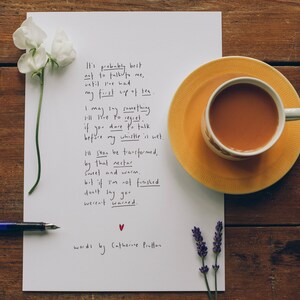 It's probably best
not to talk to me,
until I've had
my first cup of tea.
I may say something
I'll live to regret,
if you dare to talk
before my whistle is wet.
I'll soon be transformed,
by that nectar
sweet and warm,
but if I'm not finished
don't say you
weren't warned.
words by Catherine Prutton